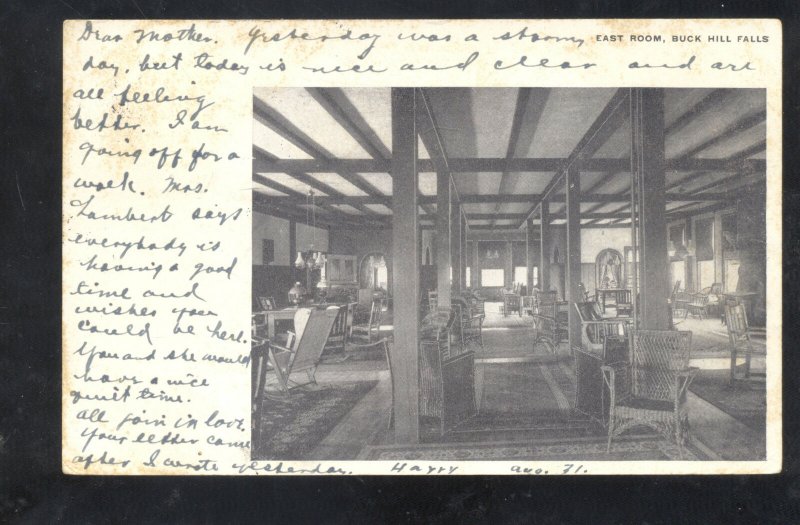 Dear Mother. Yesterday was a stormy
EAST ROOM, BUCK HILL FALLS
day, but today is nice and clear and are
all feeling
better. I am
going off for a
walk. Mrs.
Lambert says
everybody is
having a good
time and
wishes you
could be here.
You and she would
have a nice
quiet time.
All join in love.
Your letter came
after I wrote yesterday. Harry Aug. 31.